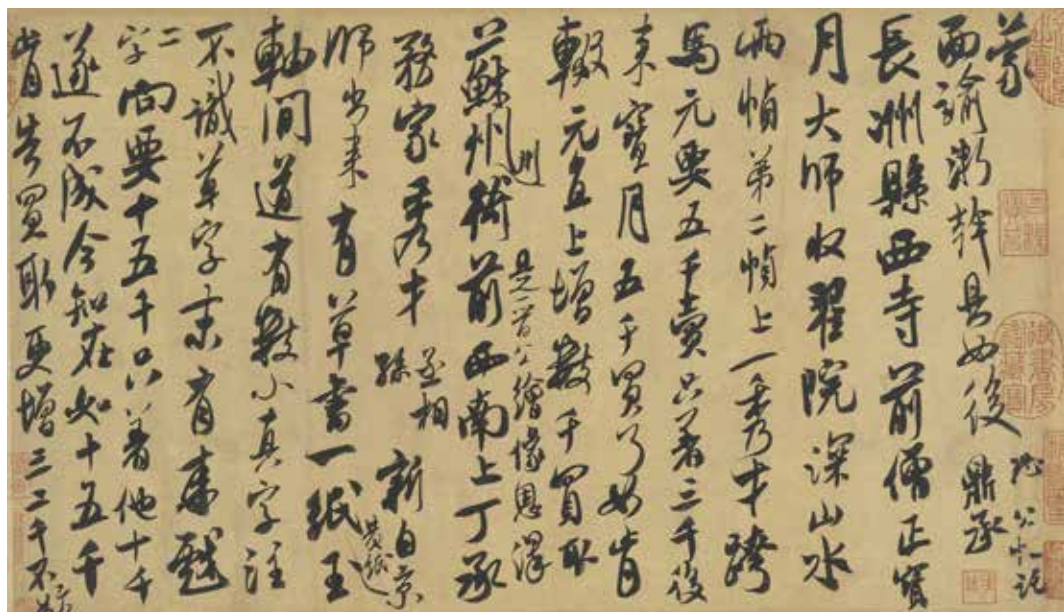 蒙
面諭浙幹具如後 鼎承
長洲縣西寺前僧正寶
月大師收翟院深山水
兩幀第二幀上一秀才跨
馬元要五千賣只著三千後
來寶月五千買了如肯
輟元直上增數千買取
是一宗公繪像恩澤
蘇州衙前西南上丁承
務家秀才 丞相孫 新自京
師出来 有草書一紙玉
軸間道有數小真字注
不識草字末有來戲
二字向要十五千只著他十千
遂不成今知在如十五千
肯告買取更增三二千不妨